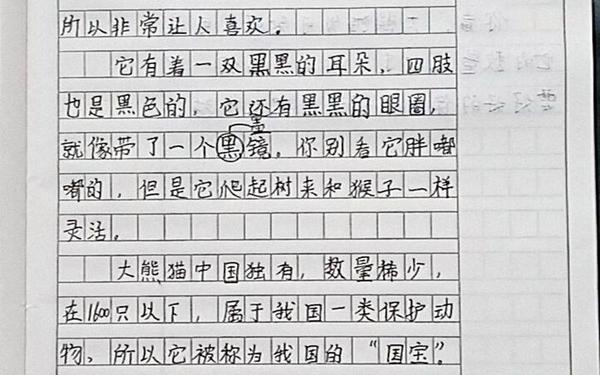 所以非常让人喜欢。
它有着一双黑黑的耳朵,四肢
也是黑色的,它还有黑黑的眼圈,
就像带了一个黑镜。你别看它胖嘟
嘟的,但是它爬起树来和猴子一样
灵活。
大熊猫中国独有,数量稀少,
在1600只以下,属于我国一类保护动
物、所以它被称为我国的“国宝”。